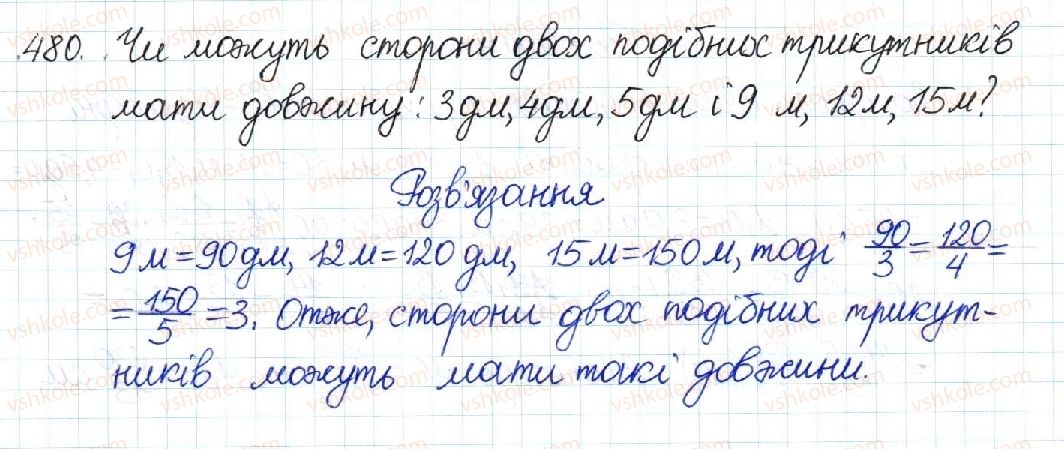 480. Чи можуть сторони двох подібних трикутників
мати довжину: 3дм, 4дм, 5дм і 9 м, 12м, 15м?
Розв'язання
9м=90дм, 12м=120дм, 15м=150м, тоді 90/3 = 120/4 =
= 150/5 =3. Отже, сторони двох подібних трикут-
ників можуть мати такі довжини.